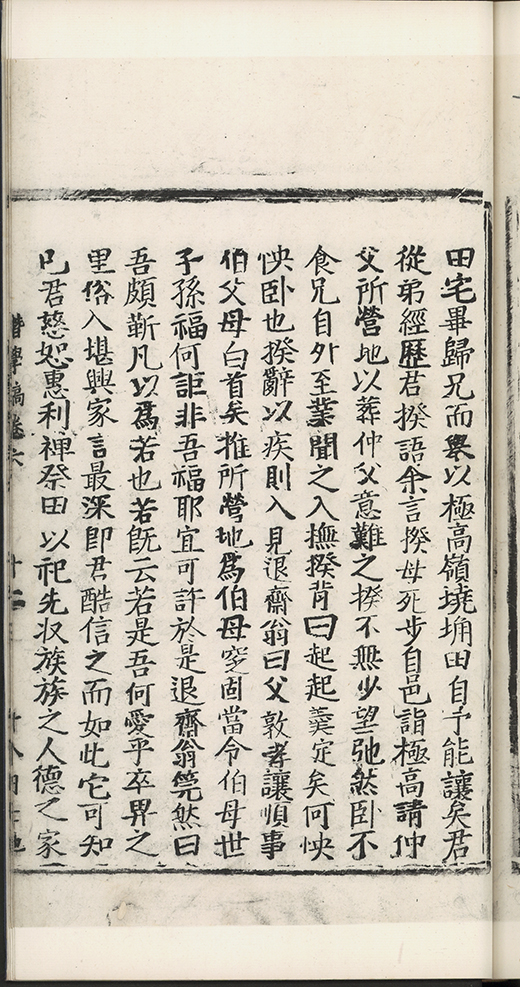 田宅畢歸兄而舉以極高嶺墝埆田自予能讓矣君
從弟經歷君揆語余言揆母死步自邑詣極高請仲
父所營地以葬仲父意難之揆不無少望弛然卧不
食兄自外至業聞之入撫揆背曰起起羹定矣何怏
怏卧也揆辭以疾則入見退齋翁曰父敦孝讓順事
伯父母白首矣推所營地為伯母窆固當令伯母世
子孫福何詎非吾福耶宜可許於是退齋翁筦然曰
吾頗靳凡以為若也若既云若是吾何愛乎卒畀之
里俗入堪輿家言最深即君酷信之而如此它可知
已君慈恕惠利禪祭田以祀先収族族之人德之家
卷六
十二